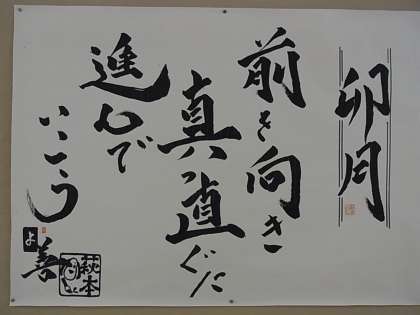 卯月
前を向き
真っ直ぐに
進んで
いこう
よ
善
萩本